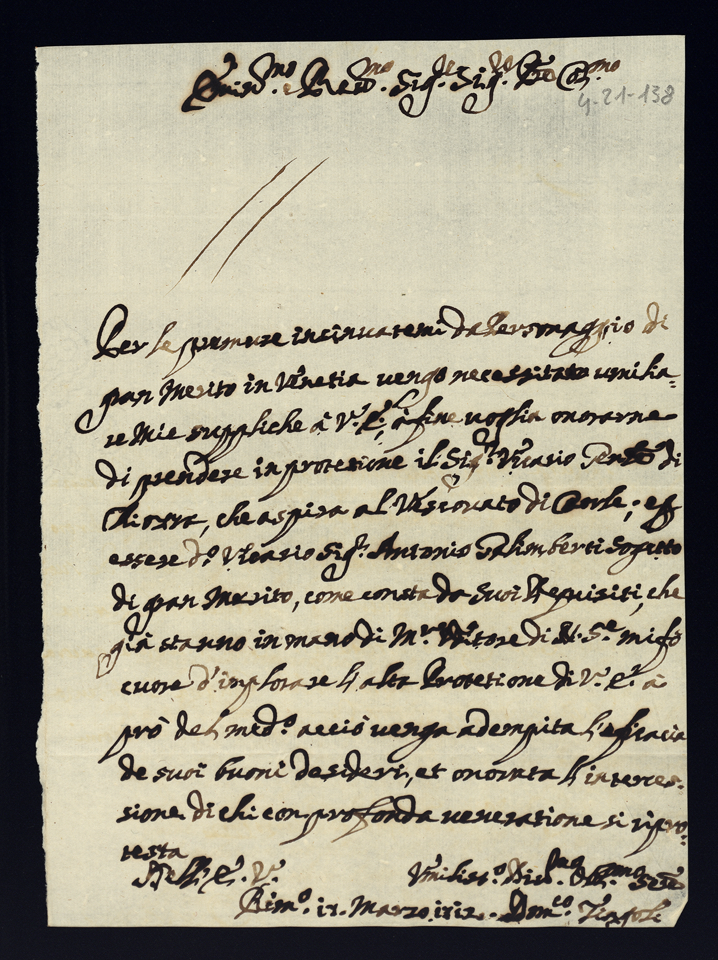 Emin.mo e Rev.mo Sig.re Sig.re P.ne Col.mo
4-21-138
Per le premure insinuatemi da Personaggio di
gran Merito in Venetia vengo necessitato umilia=
re mie suppliche à V. E., à fine voglia onorarne
di prendere in protetione il Sig.r Vicario di
Chiozza, che aspira al Vescovato di Caorle; et
essere d.o Vicario Sig.r Antonio Palimberti Sogetto
di gran Merito, come consta da Suoi Requisiti, che
già stanno in mano di M.r di N. S.re mi fò
cuore d'implorare l'alta Protetione di V. E. à
prò del med.o acciò venga adempita l'eficacia
de suoi buoni desideri, et onorata l'interces=
sione di chi con profonda veneratione si ripro=
testa
Dell' E. V.
Umiliss.o Div.mo Obb.mo Ser.e
Rim.o Marzo 1712. Dom.co